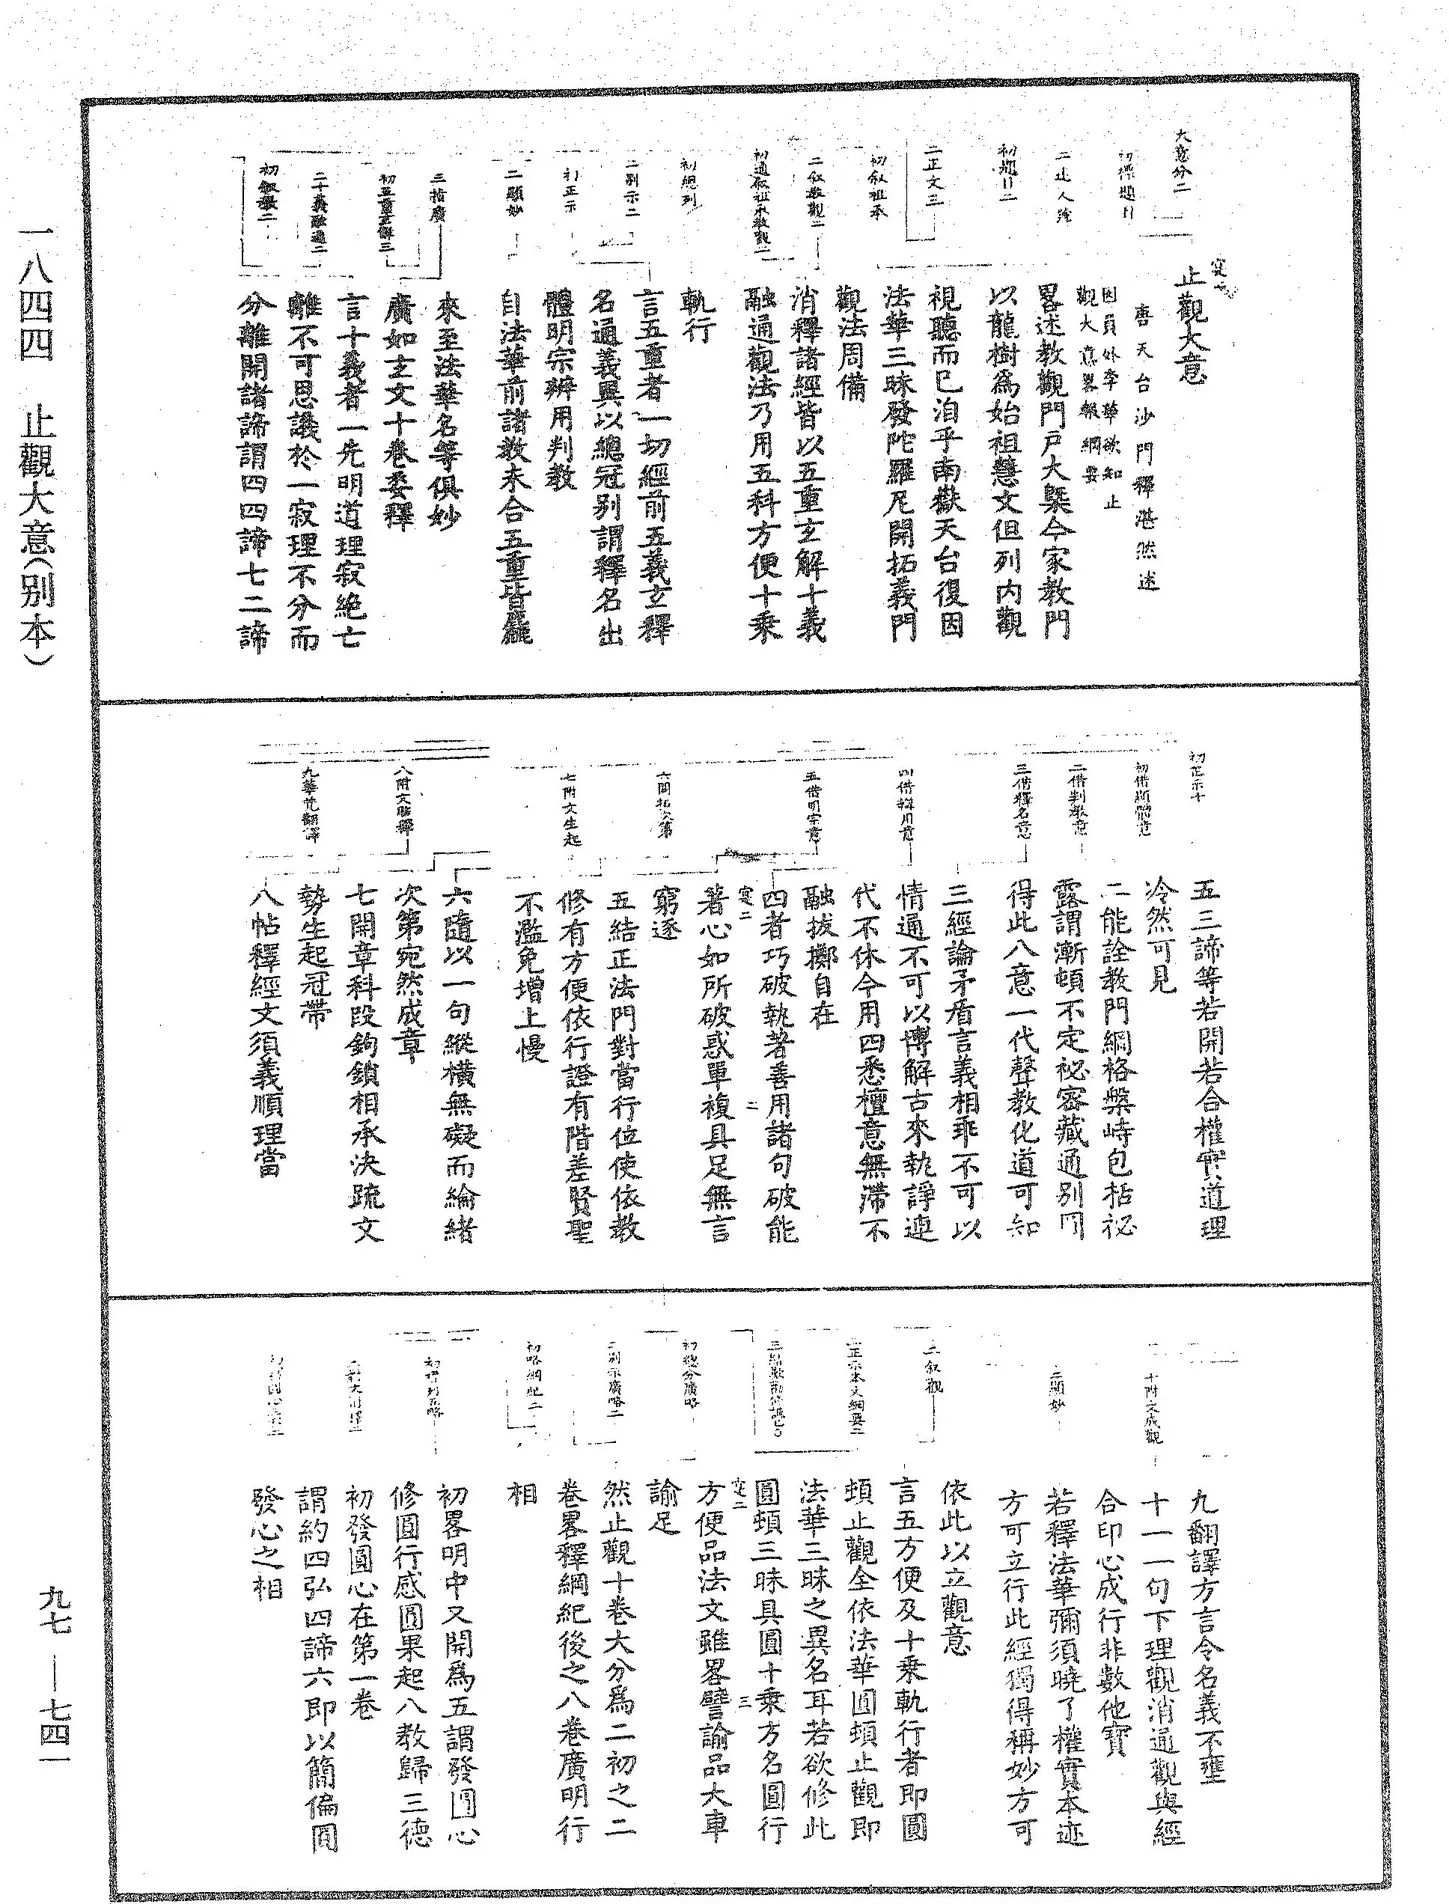 一八四四　止觀大意(别本)
九七—七四一
大意分二
初標題目
初題目二
二正文三
初叙祖承
二叙教觀二
初通叙祖承教觀二
初總列
二别示二
初正示
二顯妙
三指廣
初五重玄解三
二十義融通二
初叙教二
止觀大意
唐天台沙門釋湛然述
因員外李華欲知止
觀大意畧報綱要
畧述教觀門戸大槩今家教門
以龍樹爲始祖慧文但列内觀
視聽而已洎乎南嶽天台復因
法華三昧發陀羅尼開拓義門
觀法周備
消釋諸經皆以五重玄解十義
融通觀法乃用五科方便十乘
軌行
言五重者一切經前五義玄釋
名通義異以總冠别謂釋名出
體明宗辨用判教
自法華前諸教未合五重皆麤
來至法華名等俱妙
廣如玄文十卷委釋
言十義者一先明道理寂絶亡
離不可思議於一寂理不分而
分離開諸諦謂四四諦七二諦
初正示十
初借顯體意
二借判教意
三借釋名意
四借辯用意
五借明宗意
六開拓次第
七附文生起
八附文貼釋
九華梵翻譯
五三諦等若開若合權實道理
冷然可見
二能詮教門綱格槃峙包栝祕
露謂漸頓不定祕密藏通别圓
得此八意一代聲教化道可知
三經論矛盾言義相乖不可以
情通不可以博解古來執諍連
代不休今用四悉檀意無滯不
融拔擲自在
四者巧破執著善用諸句破能
著心如所破惑單複具足無言
窮逐
五結正法門對當行位使依教
修有方便依行證有階差賢聖
不濫免增上慢
六隨以一句縱橫無礙而綸緒
次第宛然成章
七開章科段鉤鎖相承決疏文
勢生起冠帶
八帖釋經文須義順理當
十附文成觀
二顯妙
二叙觀
二正示本文綱要二
初總分廣略
二别示廣略二
初略綱紀二
初標列五略
九翻譯方言令名義不壅
十一一句下理觀消通觀與經
合印心成行非數他寶
若釋法華彌須曉了權實本迹
方可立行此經獨得稱妙方可
依此以立觀意
言五方便及十乘軌行者即圓
頓止觀全依法華圓頓止觀即
法華三昧之異名耳若欲修此
圓頓三昧具圓十乘方名圓行
方便品法文雖畧譬諭品大車
諭足
然止觀十卷大分爲二初之二
卷畧釋綱紀後之八卷廣明行
相
初畧明中又開爲五謂發圓心
修圓行感圓果起八教歸三德
初發圓心在第一卷
謂約四弘四諦六即以簡偏圓
發心之相